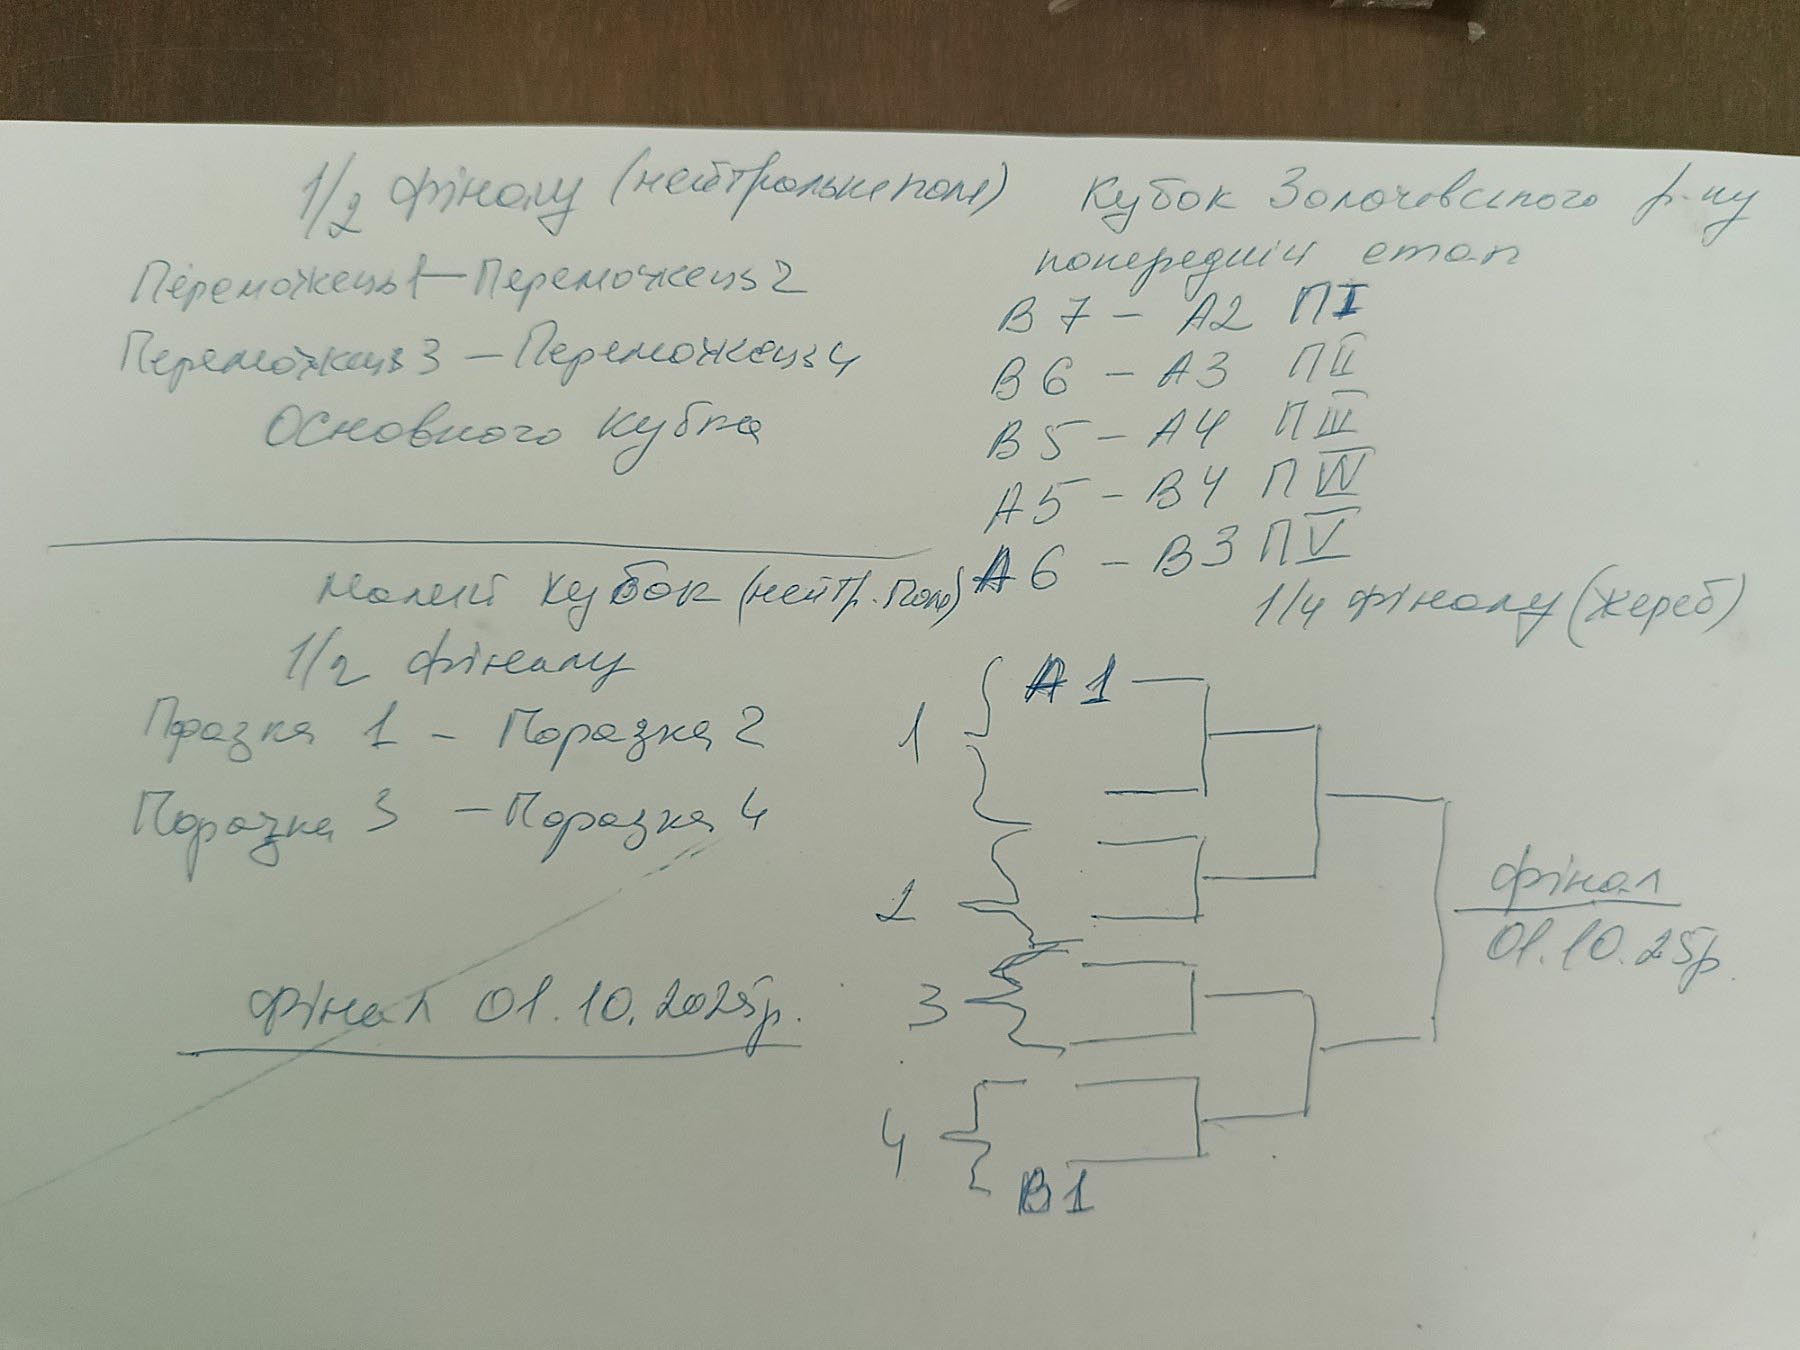 1/2 фіналу (нейтральне поле)
Переможець 1 – Переможець 2
Переможець 3 – Переможець 4
Основного кубка
Малий кубок (нейтр. поле)
1/2 фіналу
Поразка 1 – Поразка 2
Поразка 3 – Поразка 4
фінал 01.10.2025р.
Кубок Золочівського р-ну
попередній етап
В7 – А2 ПI
В6 – А3 ПII
В5 – А4 ПIII
А5 – В4 ПIV
А6 – В3 ПV
1/4 фіналу (жереб)
1 А1
2
3
4
В1
фінал
01.10.25р.